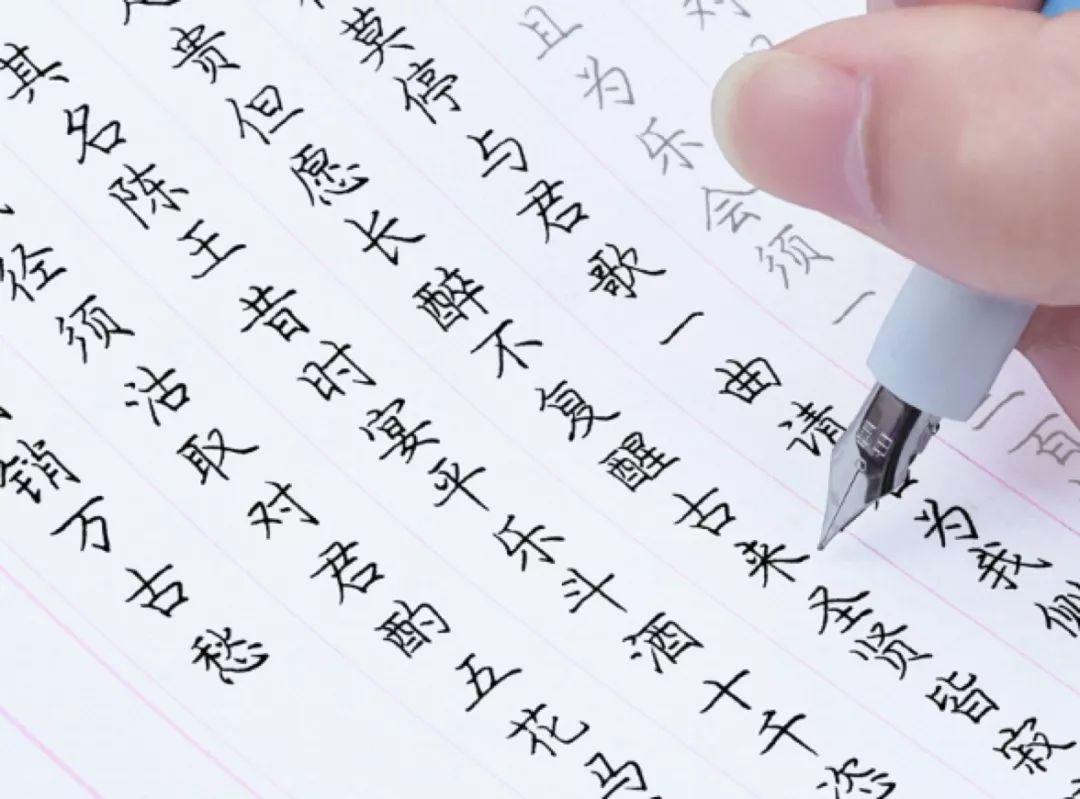 对
且为乐会须一百
莫停与君歌一曲请为我侧
贵但愿长醉不复醒古来圣贤皆寂
其名陈王昔时宴平乐斗酒十千恣
径须沽取对君酌五花马
销万古愁